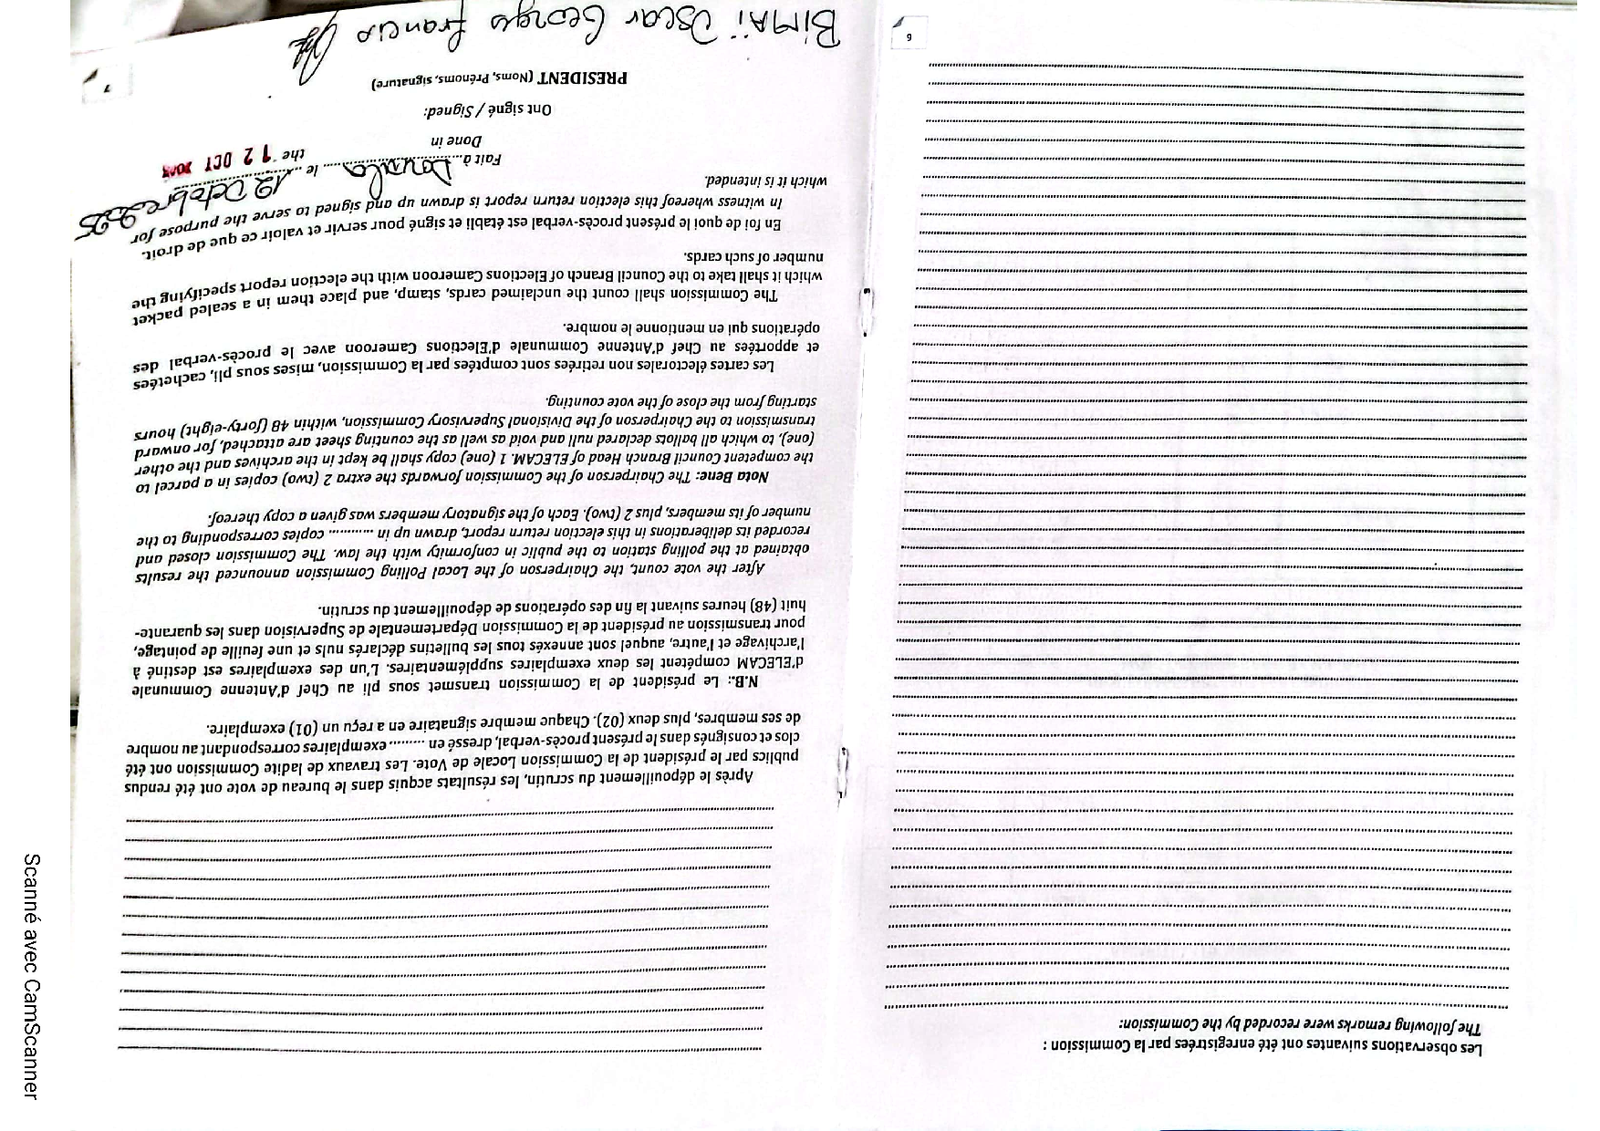 Les observations suivantes ont été enregistrées par la Commission :
The following remarks were recorded by the Commission:
6
Après le dépouillement du scrutin, les résultats acquis dans le bureau de vote ont été rendus
publics par le président de la Commission Locale de Vote. Les travaux de ladite Commission ont été
clos et consignés dans le présent procès-verbal, dressé en ......... exemplaires correspondant au nombre
de ses membres, plus deux (02). Chaque membre signataire en a reçu un (01) exemplaire.
N.B.: Le président de la Commission transmet sous pli au Chef d'Antenne Communale
d'ELECAM compétent les deux exemplaires supplémentaires. L'un des exemplaires est destiné à
l'archivage et l'autre, auquel sont annexés tous les bulletins déclarés nuls et une feuille de pointage,
pour transmission au président de la Commission Départementale de Supervision dans les quarante-
huit (48) heures suivant la fin des opérations de dépouillement du scrutin.
After the vote count, the Chairperson of the Local Polling Commission announced the results
obtained at the polling station to the public in conformity with the law. The Commission closed and
recorded its deliberations in this election return report, drawn up in ........... copies corresponding to the
number of its members, plus 2 (two). Each of the signatory members was given a copy thereof.
Nota Bene: The Chairperson of the Commission forwards the extra 2 (two) copies in a parcel to
the competent Council Branch Head of ELECAM. 1 (one) copy shall be kept in the archives and the other
(one), to which all ballots declared null and void as well as the counting sheet are attached, for onward
transmission to the Chairperson of the Divisional Supervisory Commission, within 48 (forty-eight) hours
starting from the close of the vote counting.
Les cartes électorales non retirées sont comptées par la Commission, mises sous pli, cachetées
et apportées au Chef d'Antenne Communale d'Elections Cameroon avec le procès-verbal des
opérations qui en mentionne le nombre.
The Commission shall count the unclaimed cards, stamp, and place them in a sealed packet
which it shall take to the Council Branch of Elections Cameroon with the election report specifying the
number of such cards.
En foi de quoi le présent procès-verbal est établi et signé pour servir et valoir ce que de droit.
In witness whereof this election return report is drawn up and signed to serve the purpose for
which it is intended.
Fait à Douala le 12 Octobre 2025
Done in the 12 OCT 2025
Ont signé / Signed:
PRESIDENT (Noms, Prénoms, signature)
BIMAÏ Oscar Georges Francis
7
Scanné avec CamScanner